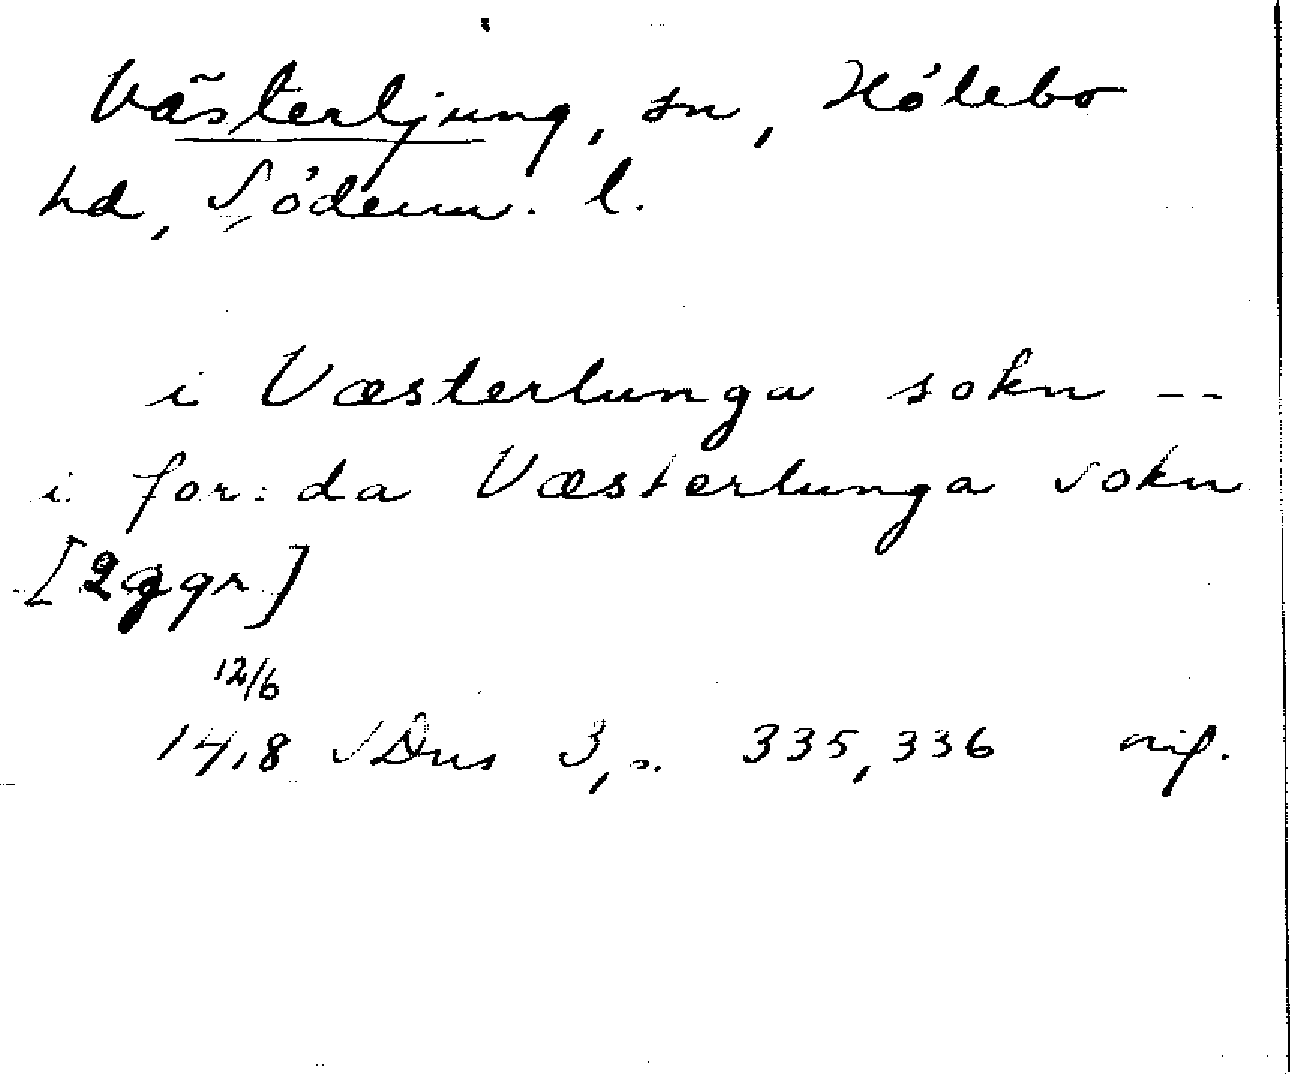 Västerljung, sn, Hölebo
hd, Söderm. l.
i Væsterlunga sokn --
i for:da Væsterlunga sokn
[2 ggr]
12/6
1418 SDns 3, s. 335, 336 orig.